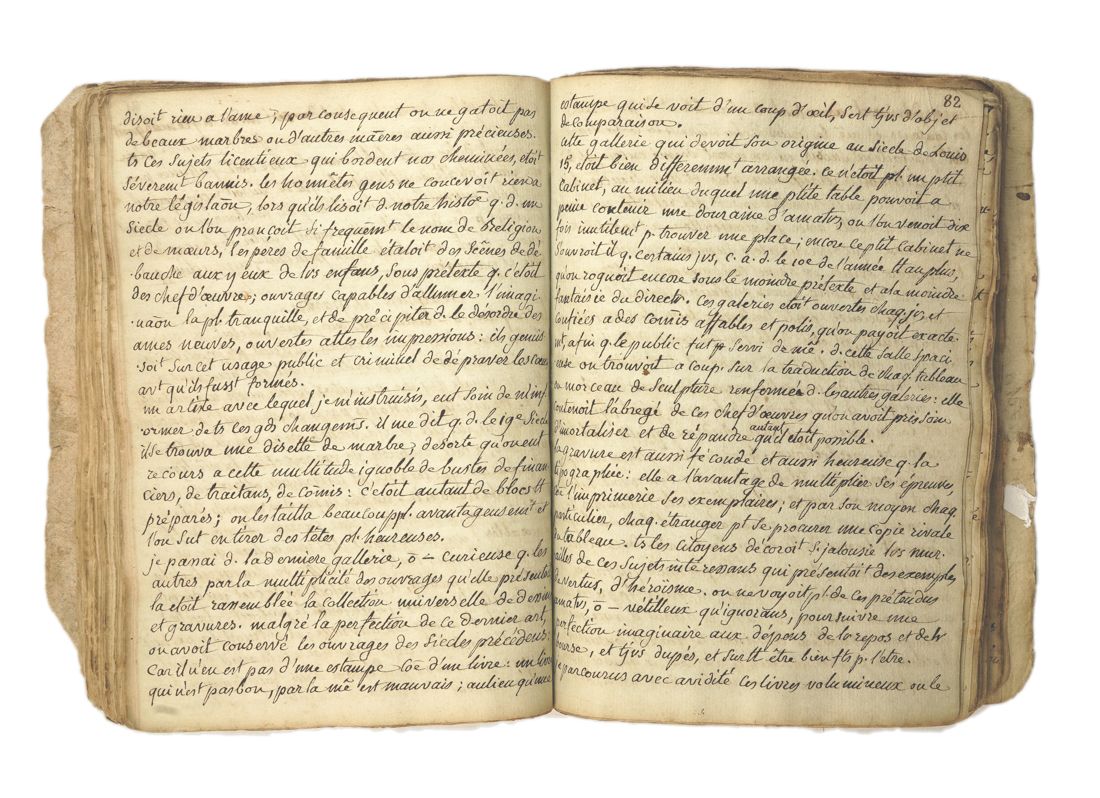 disoit rien a l'ame; par consequent on ne gatoit pas
de beaux marbres ou d'autres māeres aussi précieuses.
ts ces sujets licentieux qui bordent nos cheminées, etoit
sévèremt bannis. les honnêtes gens ne concevoit rien a
notre législaōn, lors qu'ils lisoit d. notre histoē q. d. un
siecle ou l'on prononcoit si frequemt le nom de Religion
et de mœurs, les péres de famille étaloit des scênes de dé-
bauche aux yeux de lrs enfans, sous prétexte q. c'etoit
des chef d'œuvre; ouvrages capables d'allumer l'imagi-
naōn la pl. tranquille, et de précipiter d. le désordre des
ames neuves, ouvertes a ttes les impressions: ils gemis-
soit sur cet usage public et criminel de dépraver les cœurs
avt qu'ils fusst formés.
un artiste avec lequel je m'instruisis, eut soin de m'inf-
ormer de ts ces gds changemts. il me dit q. d. le 19e siecle
il se trouva une disette de marbre; de sorte qu'on eut
recours a cette multitude ignoble de bustes de finan-
ciers, de traitans, de com̄is: c'etoit autant de blocs tt
préparés; on les tailla beaucoup pl. avantageusemt et
l'on sut en tirer des têtes pl. heureuses.
je passai d. la derniere gallerie, ō – curieuse q. les
autres par la multiplicité des ouvrages qu'elle présentoit
la étoit rassemblée la collection universelle de dessins
et gravures. malgré la perfection de ce dernier art,
on avoit conservé les ouvrages des siecles précédens:
car il n'en est pas d'une estampe coē d'un livre: un livre
qui n'est pas bon, par la mê est mauvais; au lieu qu'une
82
estampe qui se voit d'un coup d'œil, sert tjrs d'objet
de comparaison.
cette gallerie qui devoit son origine au siecle de Louis
15, étoit bien differemmt arrangée. ce n'étoit pl. un ptit
cabinet, au milieu duquel une ptite table pouvoit a
peine contenir une douzaine d'amatrs, ou l'on venoit dix
fois inutilemt p. trouver une place; encore ce ptit cabinet ne
s'ouvroit il q. certains jrs, c. a. d. le 10e de l'année tt au plus,
qu'on rognoit encore sous le moindre prétexte et a la moindre
fantaisie du directr. Ces galeries etoit ouvertes chaq. jr, et
confiées a des com̄is affables et polis, qu'on payoit exacte-
mt, afin q. le public fut p. servi de mê. d. cette salle spaci-
euse on trouvoit a coup sur la traduction de chaq. tableau
ou morceau de sculpture renfermée d. les autres galeries: elle
contenoit l'abregé de ces chef d'œuvres qu'on avoit pris soin
d'imortaliser et de répandre autant qu'il étoit possible.
la gravure est aussi féconde et aussi heureuse q. la
tipographie: elle a l'avantage de multiplier ses épreuves,
coē l'imprimerie ses exemplaires; et par son moyen chaq.
particulier, chaq. étranger pt se procurer une copie rivale
du tableau. ts les citoyens décoroit s. jalousie lrs mur-
ailles de ces sujets intéressans qui présentoit des exemples
de vertus, d'héroïsme. on ne voyoit pl. de ces prétendus
amatrs, ō – vétilleux qu'ignorans, poursuivre une
perfection imaginaire aux dépens de lr repos et de lr
bourse, et tjrs dupés, et surtt être bien fts p. l'être.
je parcourus avec avidité ces livres volumineux ou le